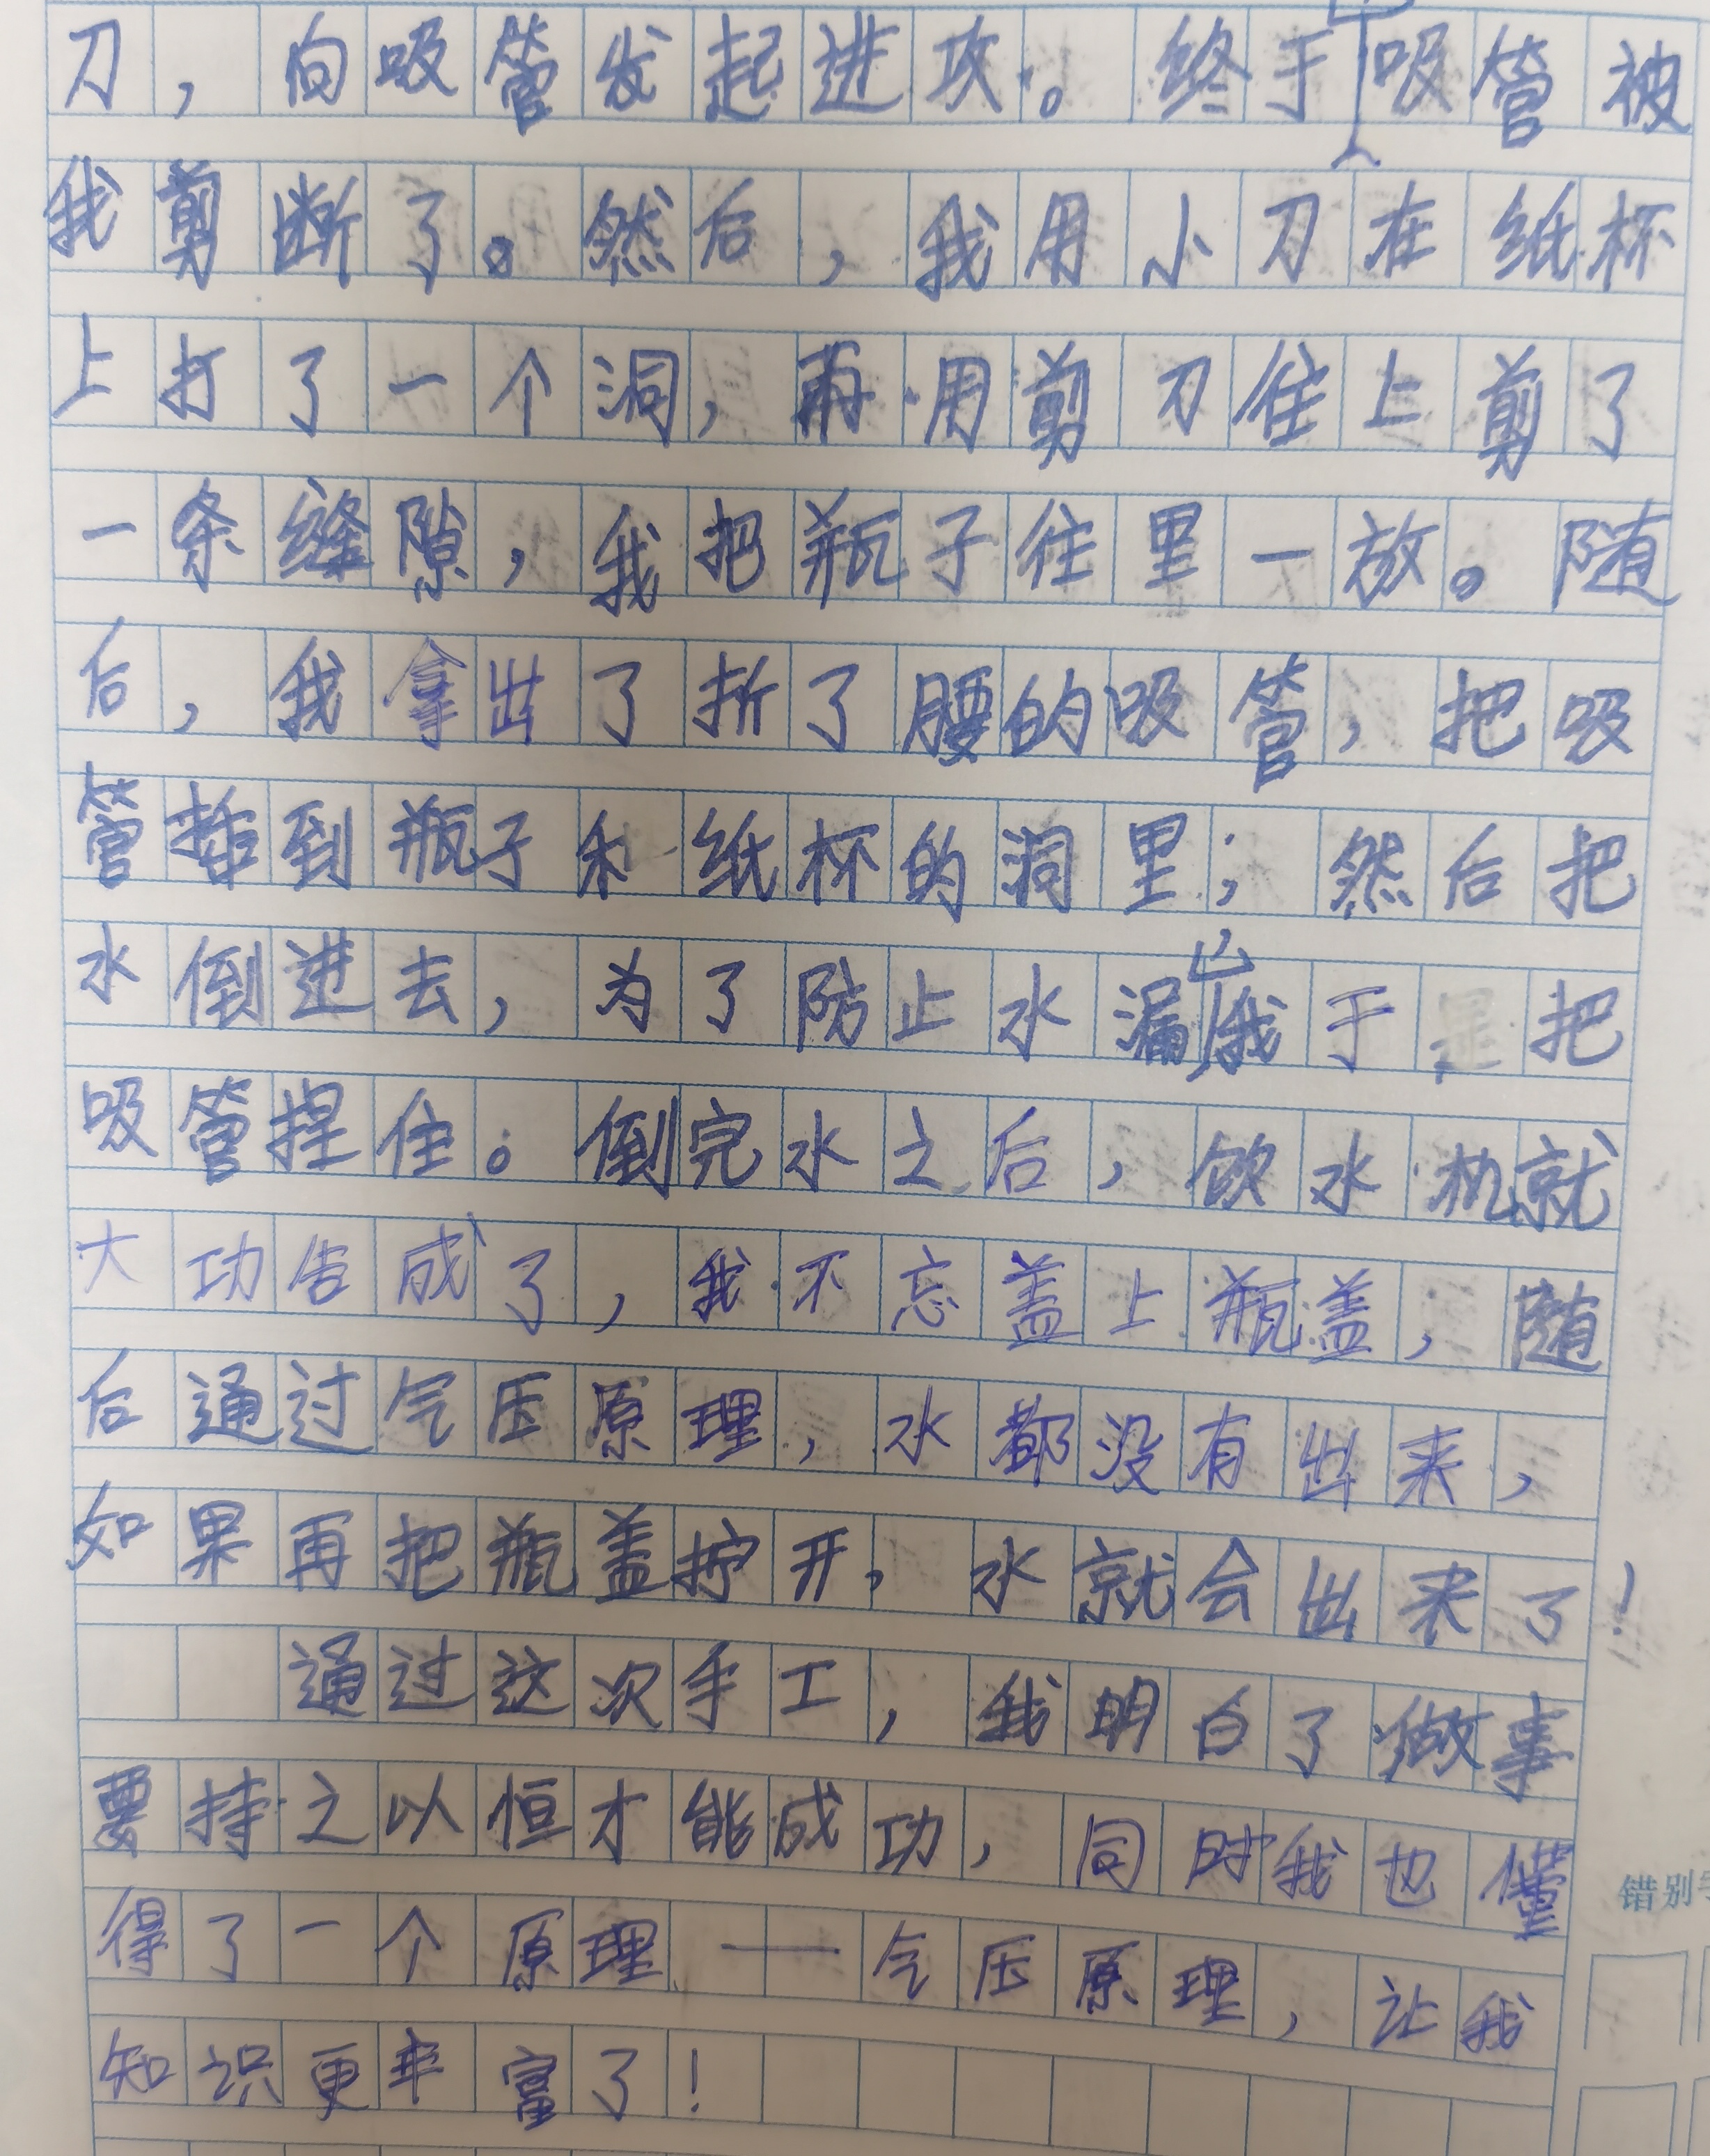 刀，向吸管发起进攻。终于吸管被
我剪断了。然后，我用小刀在纸杯
上打了一个洞，再用剪刀往上剪了
一条缝隙，我把瓶子往里一放。随
后，我拿出了折了腰的吸管，把吸
管插到瓶子和纸杯的洞里；然后把
水倒进去，为了防止水漏出我于是把
吸管捏住。倒完水之后，饮水机就
大功告成了，我不忘盖上瓶盖，随
后通过气压原理，水都没有出来，
如果再把瓶盖拧开，水就会出来了！
通过这次手工，我明白了做事
要持之以恒才能成功，同时我也懂
得了一个原理——气压原理，让我
知识更丰富了！
错别